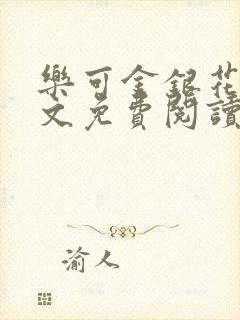 樂可金銀花
文免費閱讀
渝人